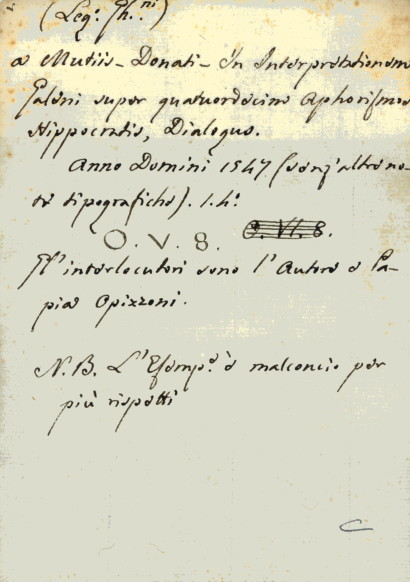 (Leg: Ph:ni)
a Mutiis - Donati - In Interpretationem
Galeni super quatuordecim Aphorismos
Hippocratis, Dialogus.
Anno Domini 1547 (senz'altre no-
te tipografiche). 1. 4º
O. V. 8.
Gl'interlocutori sono l'Autore e Pa-
pia Opizzoni.
N. B. L'Esempe. è malconcio per
più rispetti
C